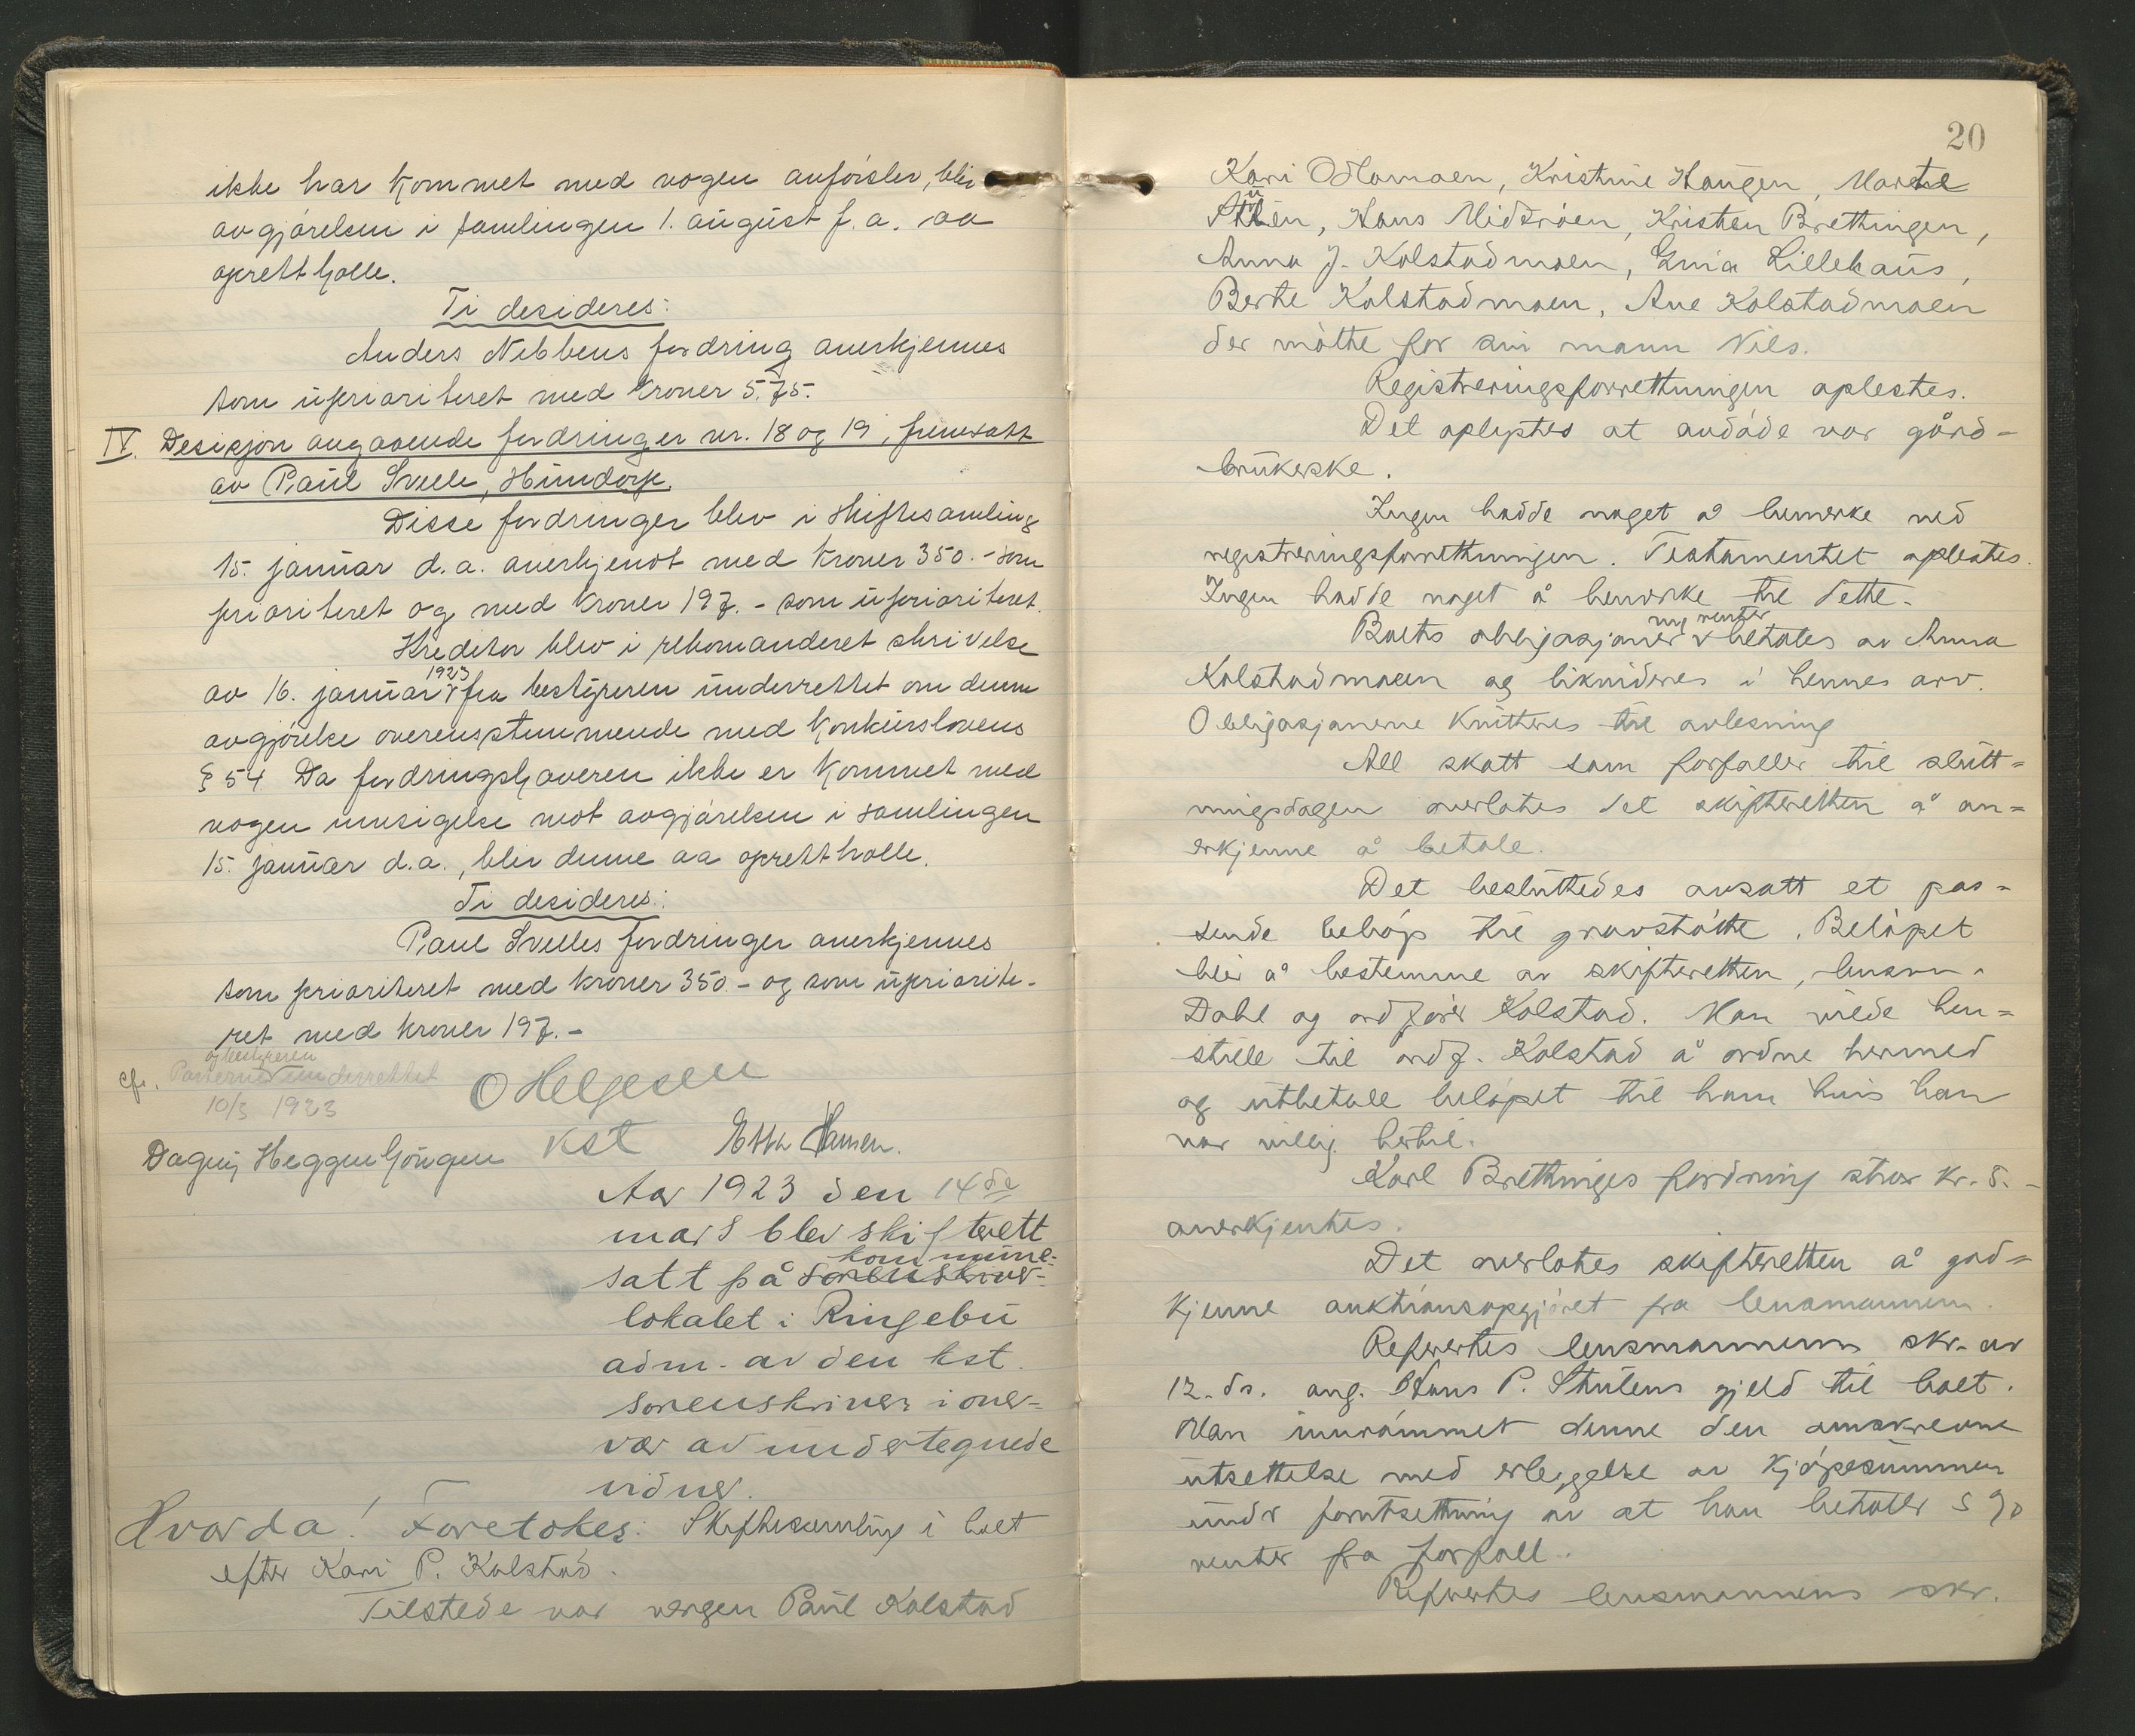 ikke har kommet med nogen anførsler, blir
avgjørelsen i samlingen 1. august f. a. aa
oprettholle.
Ti desideres:
Anders Nibbens fordring anerkjennes
som uprioriteret med kroner 5.75.
IV. Desisjon angaaende fordringer nr. 18 og 19, fremsatt
av Paul Svelle, Hundorp.
Disse fordringer blev i skiftesamling
15. januar d.a. anerkjendt med kroner 350.- som
prioriteret og med kroner 197.- som uprioriteret.
Kreditor blev i rekomanderet skrivelse
av 16. januar 1923 fra bestyreren underrettet om denne
avgjørelse overensstemmende med konkurslovens
§ 54 Da fordringshaveren ikke er kommet med
nogen innsigelse mot avgjørelsen i samlingen
15. januar d.a., blir denne aa oprettholle.
Ti desideres:
Paul Svelles fordringer anerkjennes
som prioriteret med kroner 350.- og som upriorite-
ret med kroner 197.-
og bestyreren
cfr. Parterne underrettet
10/3 1923
O Helgesen
kst
Dagny Heggenhougen
Hansen.
Aar 1923 den 14de
mars blev skifterett
satt på sorenskriver- kommune-
lokalet i Ringebu
adm. av den kst.
sorenskriver i over-
vær av undertegnede
vidner.
Hvorda! Foretokes: Skiftesamling i boet
efter Kari P. Kolstad.
Tilstede var vergen Paul Kolstad
20
Kari Odlomoen, Kristine Haugen, Marthe
Hans Midtrøen, Kristen Brethingen,
Anna J. Kolstadmoen, Lillehaus,
Berte Kolstadmoen, Ane Kolstadmoen
der møtte for sin mann Nils.
Registreringsforrettningen oplestes.
Det oplystes at avdøde var gård-
brukerske.
Ingen hadde noget å bemerke ved
registreringsforrettningen. Testamentet oplestes.
Ingen hadde noget å bemerke til dette.
Boets obligasjoner m/ renter betales av Anna
Kolstadmoen og likvideres i hennes arv.
Obligasjonerne kvitteres til avlesning
All skatt som forfaller til slutt-
ningsdagen overlates det skifteretten å an-
erkjenne å betale.
Det besluttedes avsatt et pas-
sende beløp til gravstøtte. Beløpet
blir å bestemme av skifteretten, lensm.
Dahl og ordfører Kolstad. Man vilde hen-
stille til ordf. Kolstad å ordne hermed
og utbetale beløpet til ham hvis han
var villig hertil.
Karl Brethinges fordring stor kr. 5.-
anerkjentes.
Det overlates skifteretten å god-
kjenne auktionsopgjøret fra lensmannen.
Refertes lensmannens skr. av
12. ds. ang. Hans P. Stulens gjeld til boet.
Man innrømmet denne den omskrevne
utsettelse med erleggelse av kjøpesummen
under forutsetning av at han betaler 5 %
renter fra forfall.
Refertes lensmannens skr.